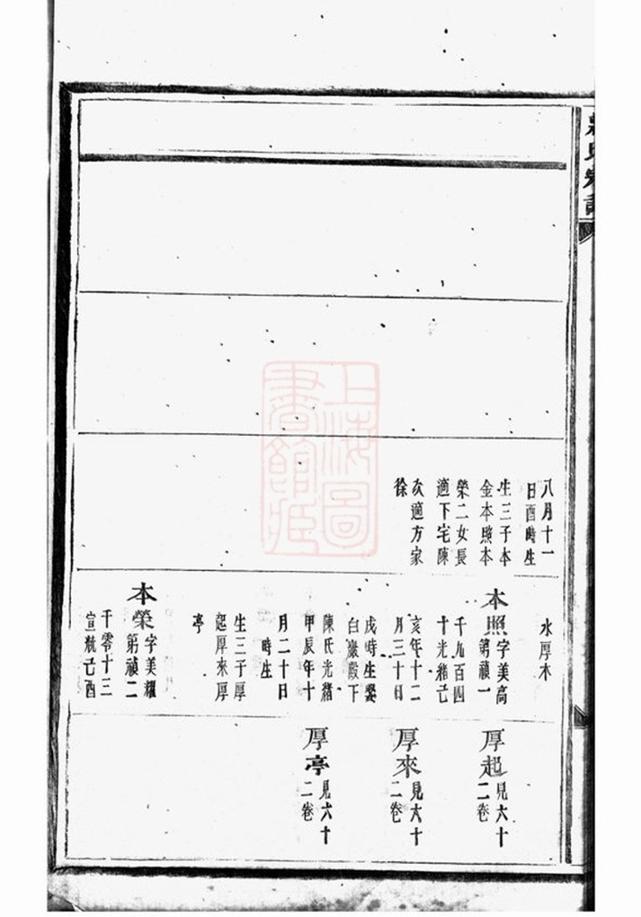 八月十一
日酉時生
生三子本
金本照本
榮二女長
適下宅陳
次適方家
徐
水厚木
本照字美高
第禎一
千九百四
十光緒己
亥年十二
月三十日
戌時生娶
白巖殿下
陳氏光緒
甲辰年十
月二十日
時生
生三子厚
超厚來厚
亭
本榮字美耀
第禎二
千零十三
宣統己酉
厚超見六十
二卷
厚來見六十
二卷
厚亭見六十
二卷
上海圖
書館藏